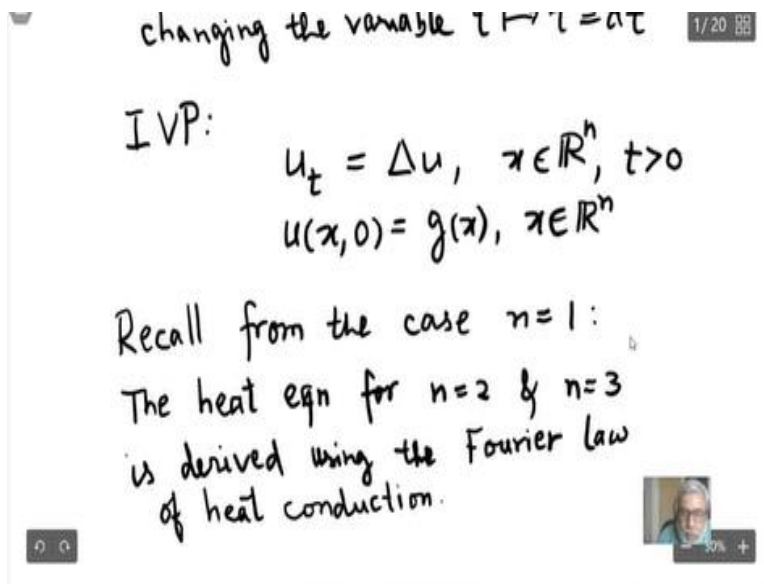 changing the variable
1/20
IVP:
u_t = Δu, x∈ℝⁿ, t>0
u(x,0) = g(x), x∈ℝⁿ
Recall from the case n=1:
The heat eqn for n=2 & n=3
is derived using the Fourier law
of heat conduction.